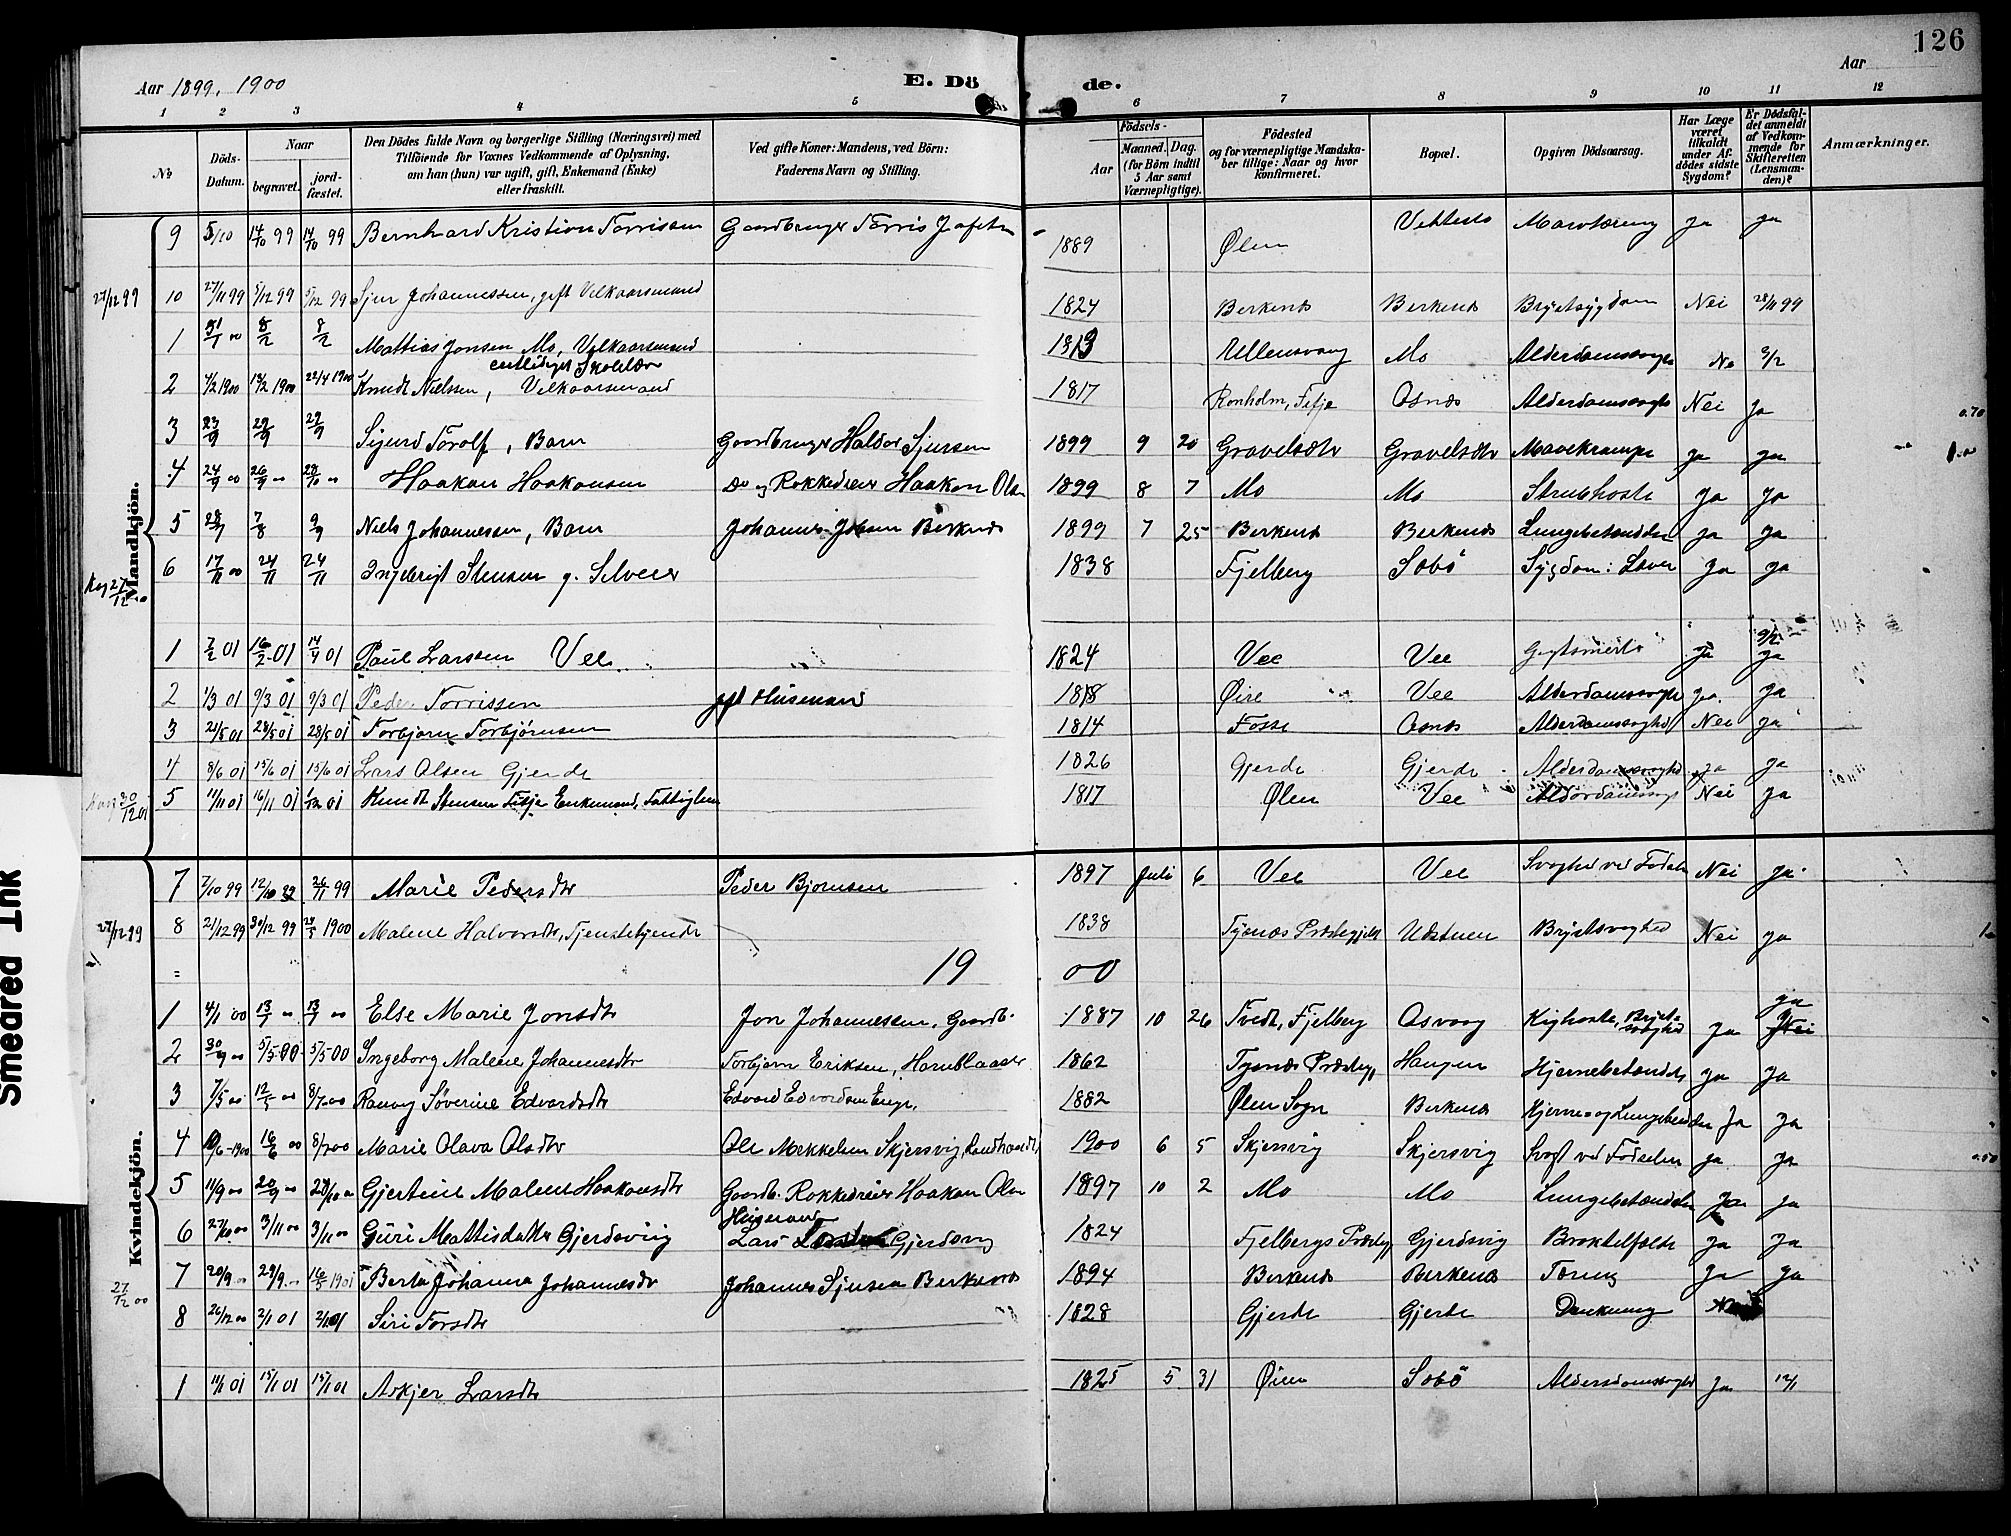 126
Aar 1899, 1900 E. Dö de. Aar
1 2 3 4 5 6 7 8 9 10 11 12
No
Döds-Datum.
Naar
begravet. jordfæstet.
Den Dödes fulde Navn og borgerlige Stilling (Næringsvei) med
Tilföiende for Voxnes Vedkommende af Oplysning,
om han (hun) var ugift, gift, Enkemand (Enke)
eller fraskilt.
Ved gifte Koner: Mandens, ved Börn:
Faderens Navn og Stilling.
Födsels-
Aar
Maaned. Dag.
(for Börn indtil
5 Aar samt
Værnepligtige).
Födested
og for værnepligtige Mandskaber tillige: Naar og hvor
konfirmeret.
Bopæl.
Opgiven Dödsaarsag.
Har Læge
været
tilkaldt
under Afdödes sidste
Sygdom?
Er Dödsfaldet anmeldt
af Vedkommende for
Skifteretten
(Lensmanden)?
Anmærkninger.
Mandkjön.
9 5/10 14/10 99 14/10 99 Bernhard Kristian Torrissen Gaardbruger Torris 1889 Ølen Marvtæring ja ja
27/12 99 10 27/11 99 5/12 99 5/12 99 Sjur Johannessen, gift Velkaarsmand 1824 Berkenes Berkenes Brystsygdom Nei 28/11 99
1 31/1 00 8/2 8/2 Mattias Jonsen Mo, Velkaarsmand 1813 Ullensvang Mo 9/2
2 4/2 1900 1900 22/4 1900 Knudt Nielssen, Velkaarsmand 1817 Ronholm, Fitje Osnes Nei ja
0.70
3 23/9 29/9 29/9 Sigurd Torolf, Barn Gaardbruger Haldor Sjursen 1899 9 20 Mavekrampe ja ja
4 24/9 00 26/9 00 28/10 00 Haakon Haakonsen Do og Rokkedreier Haakon Olsen 1899 8 7 Mo Mo Strubhoste ja ja
5 28/7 7/8 9/9 Niels Johannessen, Barn Johannes Berkenes 1899 7 25 Berkenes Berkenes ja ja
6 17/11 00 24/11 24/11 Ingebrigt Stensen g. Selveier 1838 Fjelberg Søbø Sygdom i Lever ja ja
1 7/2 01 16/2 01 14/4 01 Paul Larssen Vee 1824 Vee Vee ja 9/2 ja
2 1/3 01 9/3 01 9/3 01 Peder Torrissen gift Husmand 1818 Vee ja ja
3 21/5 01 28/5 01 28/5 01 Torbjørn Torbjørnsen 1814 Fosse Osnes Alderdomssvaghed Nei ja
4 8/6 01 15/6 01 15/6 01 Lars Olsen Gjerde 1826 Gjerde Gjerde Alderdomssvaghed ja ja
5 11/11 01 16/11 01 01 Knudt Stensen Fitje Enkemand, Fattiglem 1817 Ølen Vee Nei ja
Kvindekjön.
7 7/10 99 12/10 99 26/11 99 Marie Pedersdtr Peder Bjørnsen 1897 Juli 6 Vee Vee Svaghed ved Fødsel Nei ja
27/12 99 8 21/12 99 30/12 99 1900 Malene Halvorsdtr, Tjenestetjente 1838 Tysnes Præstegjeld Udstuen Brystsvaghed Nei ja
1900
1 4/1 00 13/7 00 13/7 00 Else Marie Jonsdtr Jon Johannessen, Gaardb. 1887 10 26 Tvedt, Fjelberg Osvaag Kighoste, Brystsvaghed ja ja Nei
2 30/4 00 5/5 00 5/5 00 Ingeborg Malene Johannesdtr Torbjørn Eriksen, Hornblaaser 1862 Tysnes Præstegj Haugen ja ja
3 7/5 00 12/5 00 8/7 00 Ranveg Søverine Edvardsdtr Edvard Edvardsen 1882 Ølen Sogn Berkenes ja ja
4 10/6 1900 16/6 00 8/7 00 Marie Olava Olsdtr Ole Mikkelsen Skjersvig, Landhandler 1900 6 5 Skjersvig Skjersvig Svagt ved Fødselen ja ja
5 11/9 00 20/9 00 28/10 00 Gjertine Malene Haakonsdtr Gaardb. Rokkedreier Haakon Olsen 1897 10 2 Mo Mo ja ja
6 27/10 00 3/11 00 3/11 00 Guri Mattisdatter Gjerdsvig Husmand Lars Gjerdsvig 1824 Fjelbergs Præstegj Gjerdsvig Brokkelfælde ja ja
7 20/9 00 29/9 00 16/5 1901 Berta Johanna Johannesdtr Johannes Sjursen Berkenes 1894 Berkenes Berkenes Tæring ja ja
27/12 00 8 26/12 00 2/1 01 2/1 01 Siri Torsdtr 1828 Gjerde Gjerde
1 11/1 01 15/1 01 15/1 01 Askjer Larsdtr 1825 5 31 Ølen Søbø Alderdomssvaghed ja 12/1
Smeared Ink